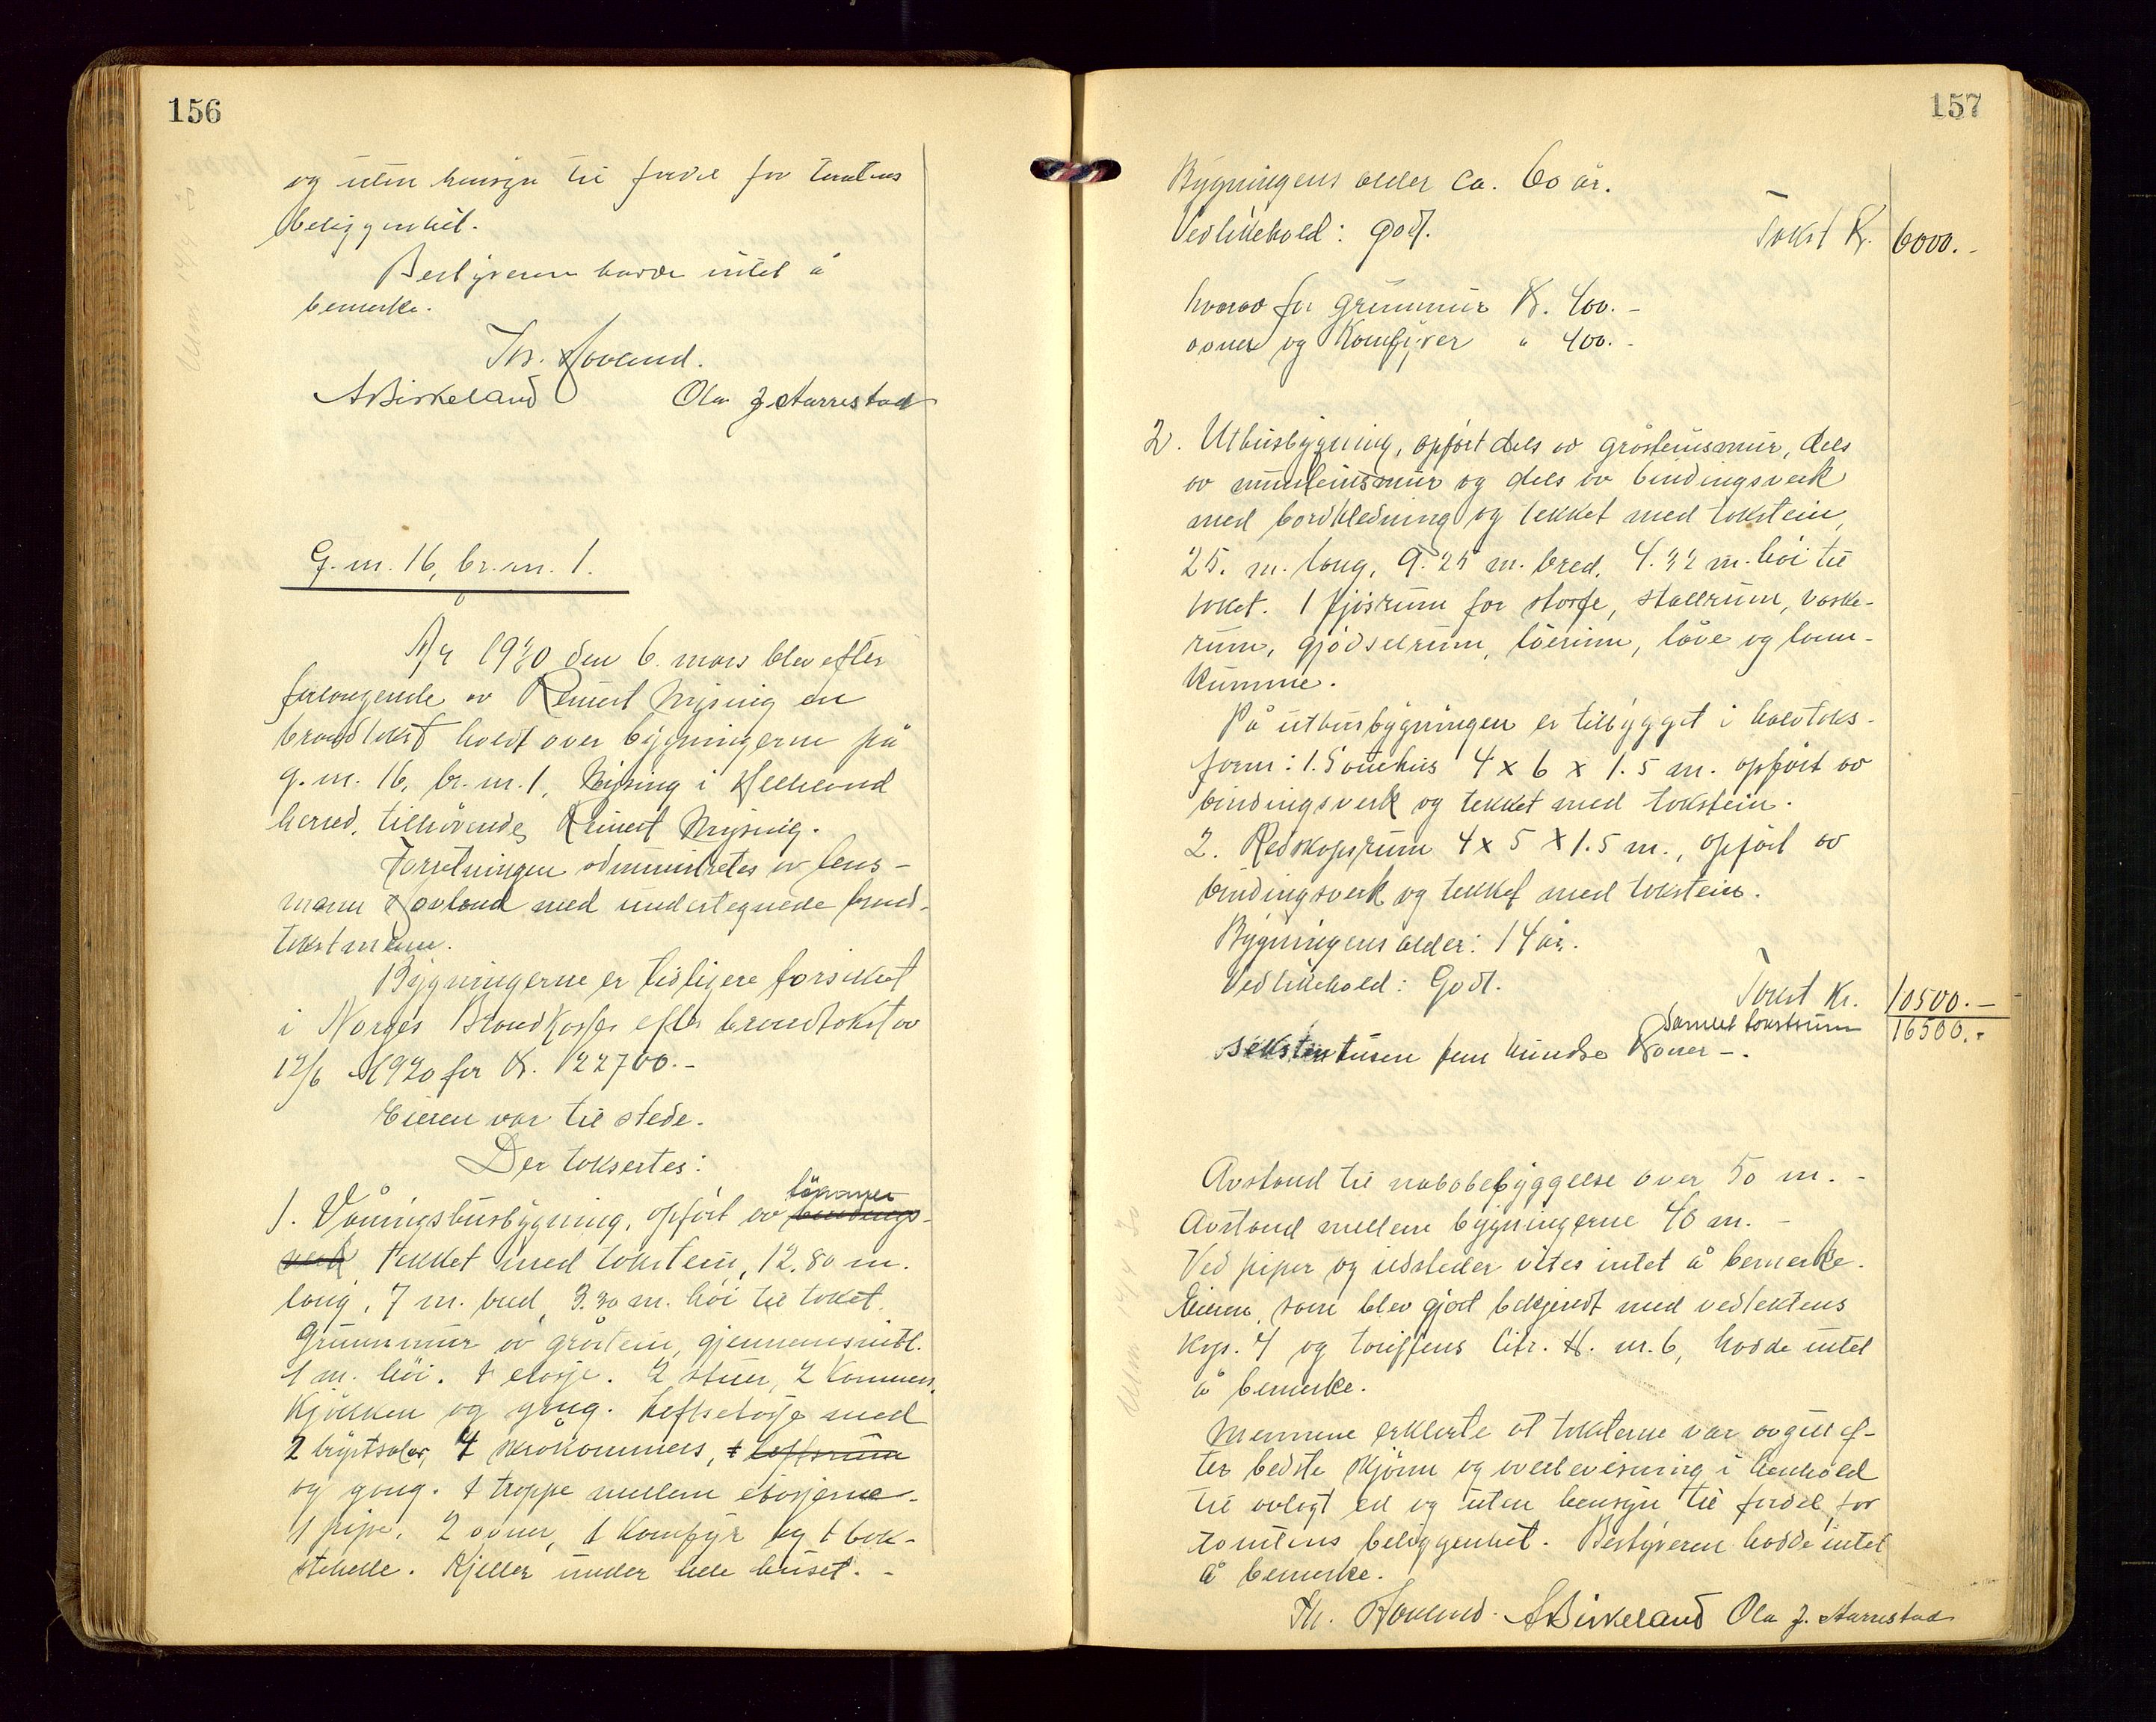 156
og uten hensyn til fordel for tomtens
beliggenhet.
Bestyreren hadde intet å
bemerke.
Th. Hovland.
A Birkeland Ola J. Aarrestad
G. nr. 16, br. nr. 1.
År 1930 den 6. mars blev efter
forlangende av Reinert Mysing en
brandtakst holdt over bygningerne på
g. nr. 16, br. nr. 1, Mysing i Helleland
herred, tilhørende Reinert Mysing.
Forretningen administretes av lens-
mann Hovland med undertegnede brand-
takstmenn.
Bygningerne er tidligere forsikret
i Norges Brandkasse efter brandtakst av
12/6 1920 for Kr. 22700.-
Eieren var til stede.
Der taksertes:
1. Våningshusbygning, opført av bindings- tømmer
verk tekket med takstein, 12.80 m.
lang, 7 m. bred, 3.30 m. høi til taket.
Grunnmur av gråstein, gjennemsnitl.
1 m. høi. 1 etasje. 2 stuer, 2 kammers,
kjøkken og gang. Loftsetasje med
2 brystsaler, 4 skråkammers, 1 loftsrum
og gang. 1 trappe mellem etasjerne.
1 pipe. 2 ovner, 1 komfyr og 1 bak-
stehelle. Kjeller under hele huset. -
157
Bygningens alder ca. 60 år.
Vedlikehold: godt. Takst Kr. 6000.-
hvorav for grunnmur Kr. 400.-
ovner og Komfyrer " 400.-
2. Uthusbygning, opført dels av gråsteinsmur, dels
av mursteinsmur og dels av bindingsverk
med bordkledning og tekket med takstein,
25. m. lang, 9.25 m. bred, 4.32 m. høi til
taket. 1 fjøsrum for storfe, stallrum, vaske-
rum, gjødselrum, løerum, låve og lann-
kumme.
På uthusbygningen er tilbygget i halvtaks-
form: 1. Sauehus 4 x 6 x 1.5 m. opført av
bindingsverk og tekket med takstein.
2. Redskapsrum 4 x 5 x 1.5 m., opført av
bindingsverk og tekket med takstein.
Bygningens alder: 14 år.
Vedlikehold: Godt.
Takst Kr. 10500.-
Samlet takstsum 16500.-
sekstentusen fem hundre Kroner -.
Avstand til nabobebyggelse over 50 m. -
Avstand mellem bygningerne 40 m. -
Ved piper og ildsteder vites intet å bemerke.
Eieren, som blev gjort bekjendt med vedtektens
kap. 7 og tariffens litr. H. nr. 6, hadde intet
å bemerke.
Mennene erklerte at taksterne var avgitt ef-
ter bedste skjønn og overbevisning i henhold
til avlagt ed og uten hensyn til fordel for
tomtens beliggenhet. Bestyreren hadde intet
å bemerke.
Th. Hovland. A Birkeland Ola J. Aarrestad